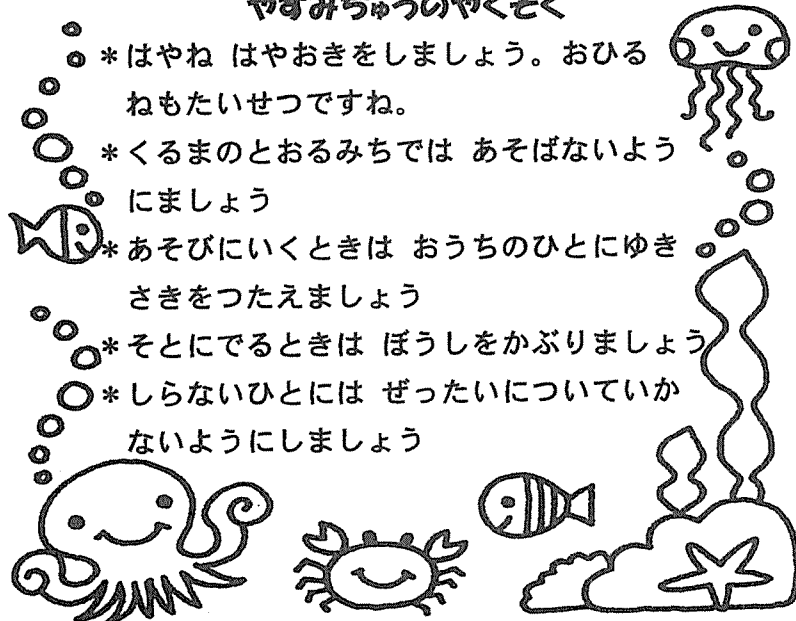 やすみちゅうのやくそく
*はやね はやおきをしましょう。おひる
ねもたいせつですね。
*くるまのとおるみちでは あそばないよう
にましょう
*あそびにいくときは おうちのひとにゆき
さきをつたえましょう
*そとにでるときは ぼうしをかぶりましょう
*しらないひとには ぜったいについていか
ないようにしましょう